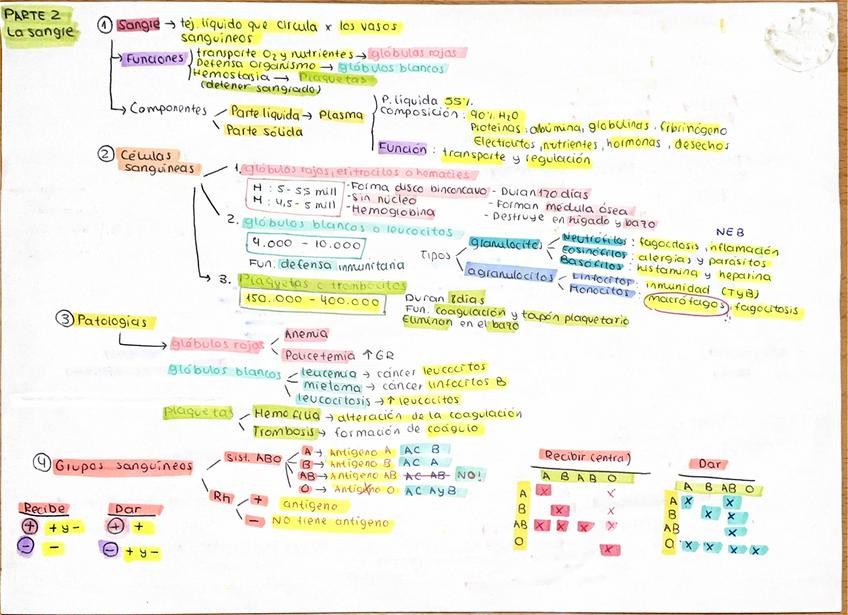 PARTE 2
La sangre
① Sangre → tej. líquido que circula x los vasos
sanguíneos
Funciones
transporte O2 y nutrientes → glóbulos rojas
Defensa Organismo → glóbulos blancos
Hemostasia → Plaquetas
(detener sangrado)
Componentes
Parte líquida → Plasma
Parte sólida
P. líquida 55%.
composición: 90% H2O
Proteínas: albúmina, globulinas, fibrinógeno
Electrolitos, nutrientes, hormonas, desechos
Función: transporte y regulación
② Células
sanguíneas
1. glóbulos rojos, eritrocitos o hematíes
H: 5 - 5'5 mill
M: 4,5 - 5 mill
- Forma disco bincóncavo
- Sin núcleo
- Hemoglobina
- Duran 120 días
- Forman médula ósea
- Destruye en hígado y bazo
2. glóbulos blancos o leucocitos
4.000 - 10.000
Fun. defensa inmunitaria
Tipos
granulocitos
NEB
Neutrófilos: fagocitosis, inflamación
Eosinófilos: alergias y parásitos
Basófilos: histamina y heparina
agranulocitos
Linfocitos: inmunidad (TyB)
Monocitos: macrófagos, fagocitosis
3. Plaquetas o trombocitos
150.000 - 400.000
Duran 8 días
Fun. coagulación y tapón plaquetario
Eliminan en el bazo
③ Patologías
glóbulos rojos
Anemia
Policetemia ↑ GR
glóbulos blancos
leucemia → cáncer leucocitos
mieloma → cáncer linfocitos B
leucocitosis → ↑ leucocitos
plaquetas
Hemofilia → alteración de la coagulación
Trombosis → formación de coágulo
④ Grupos sanguíneos
Sist. ABO
A → Antígeno A AC B
B → Antígeno B AC A
AB → Antígeno AB AC AB NO!
O → Antígeno O AC A y B
Rh
+ antígeno
- NO tiene antígeno
Recibe
+ + y -
- -
Dar
+ +
- + y -
Recibir (entra)
A B AB O
A X X
B X X
AB X X X X
O X
Dar
A B AB O
A X X
B X X
AB X
O X X X X